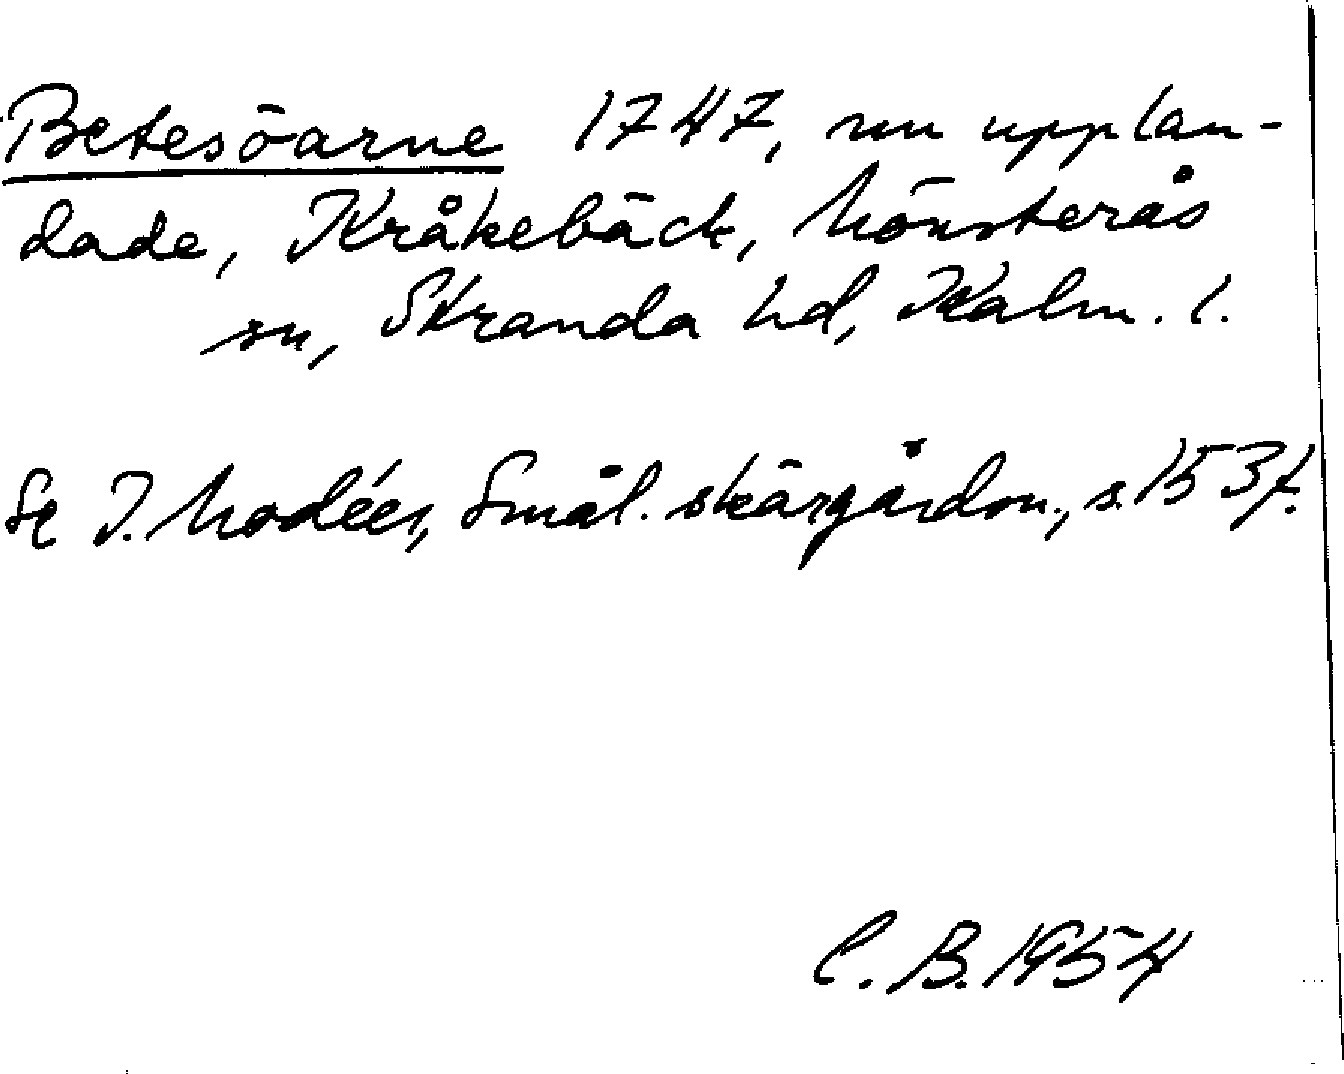 Betesöarne 1747, nu upplan-
dade, Kråkebäck, Mönsterås
sn, Stranda hd, Kalm. l.
Se I. Modéer, Smål. skärgårdsn., s. 153f.
C. B. 1954